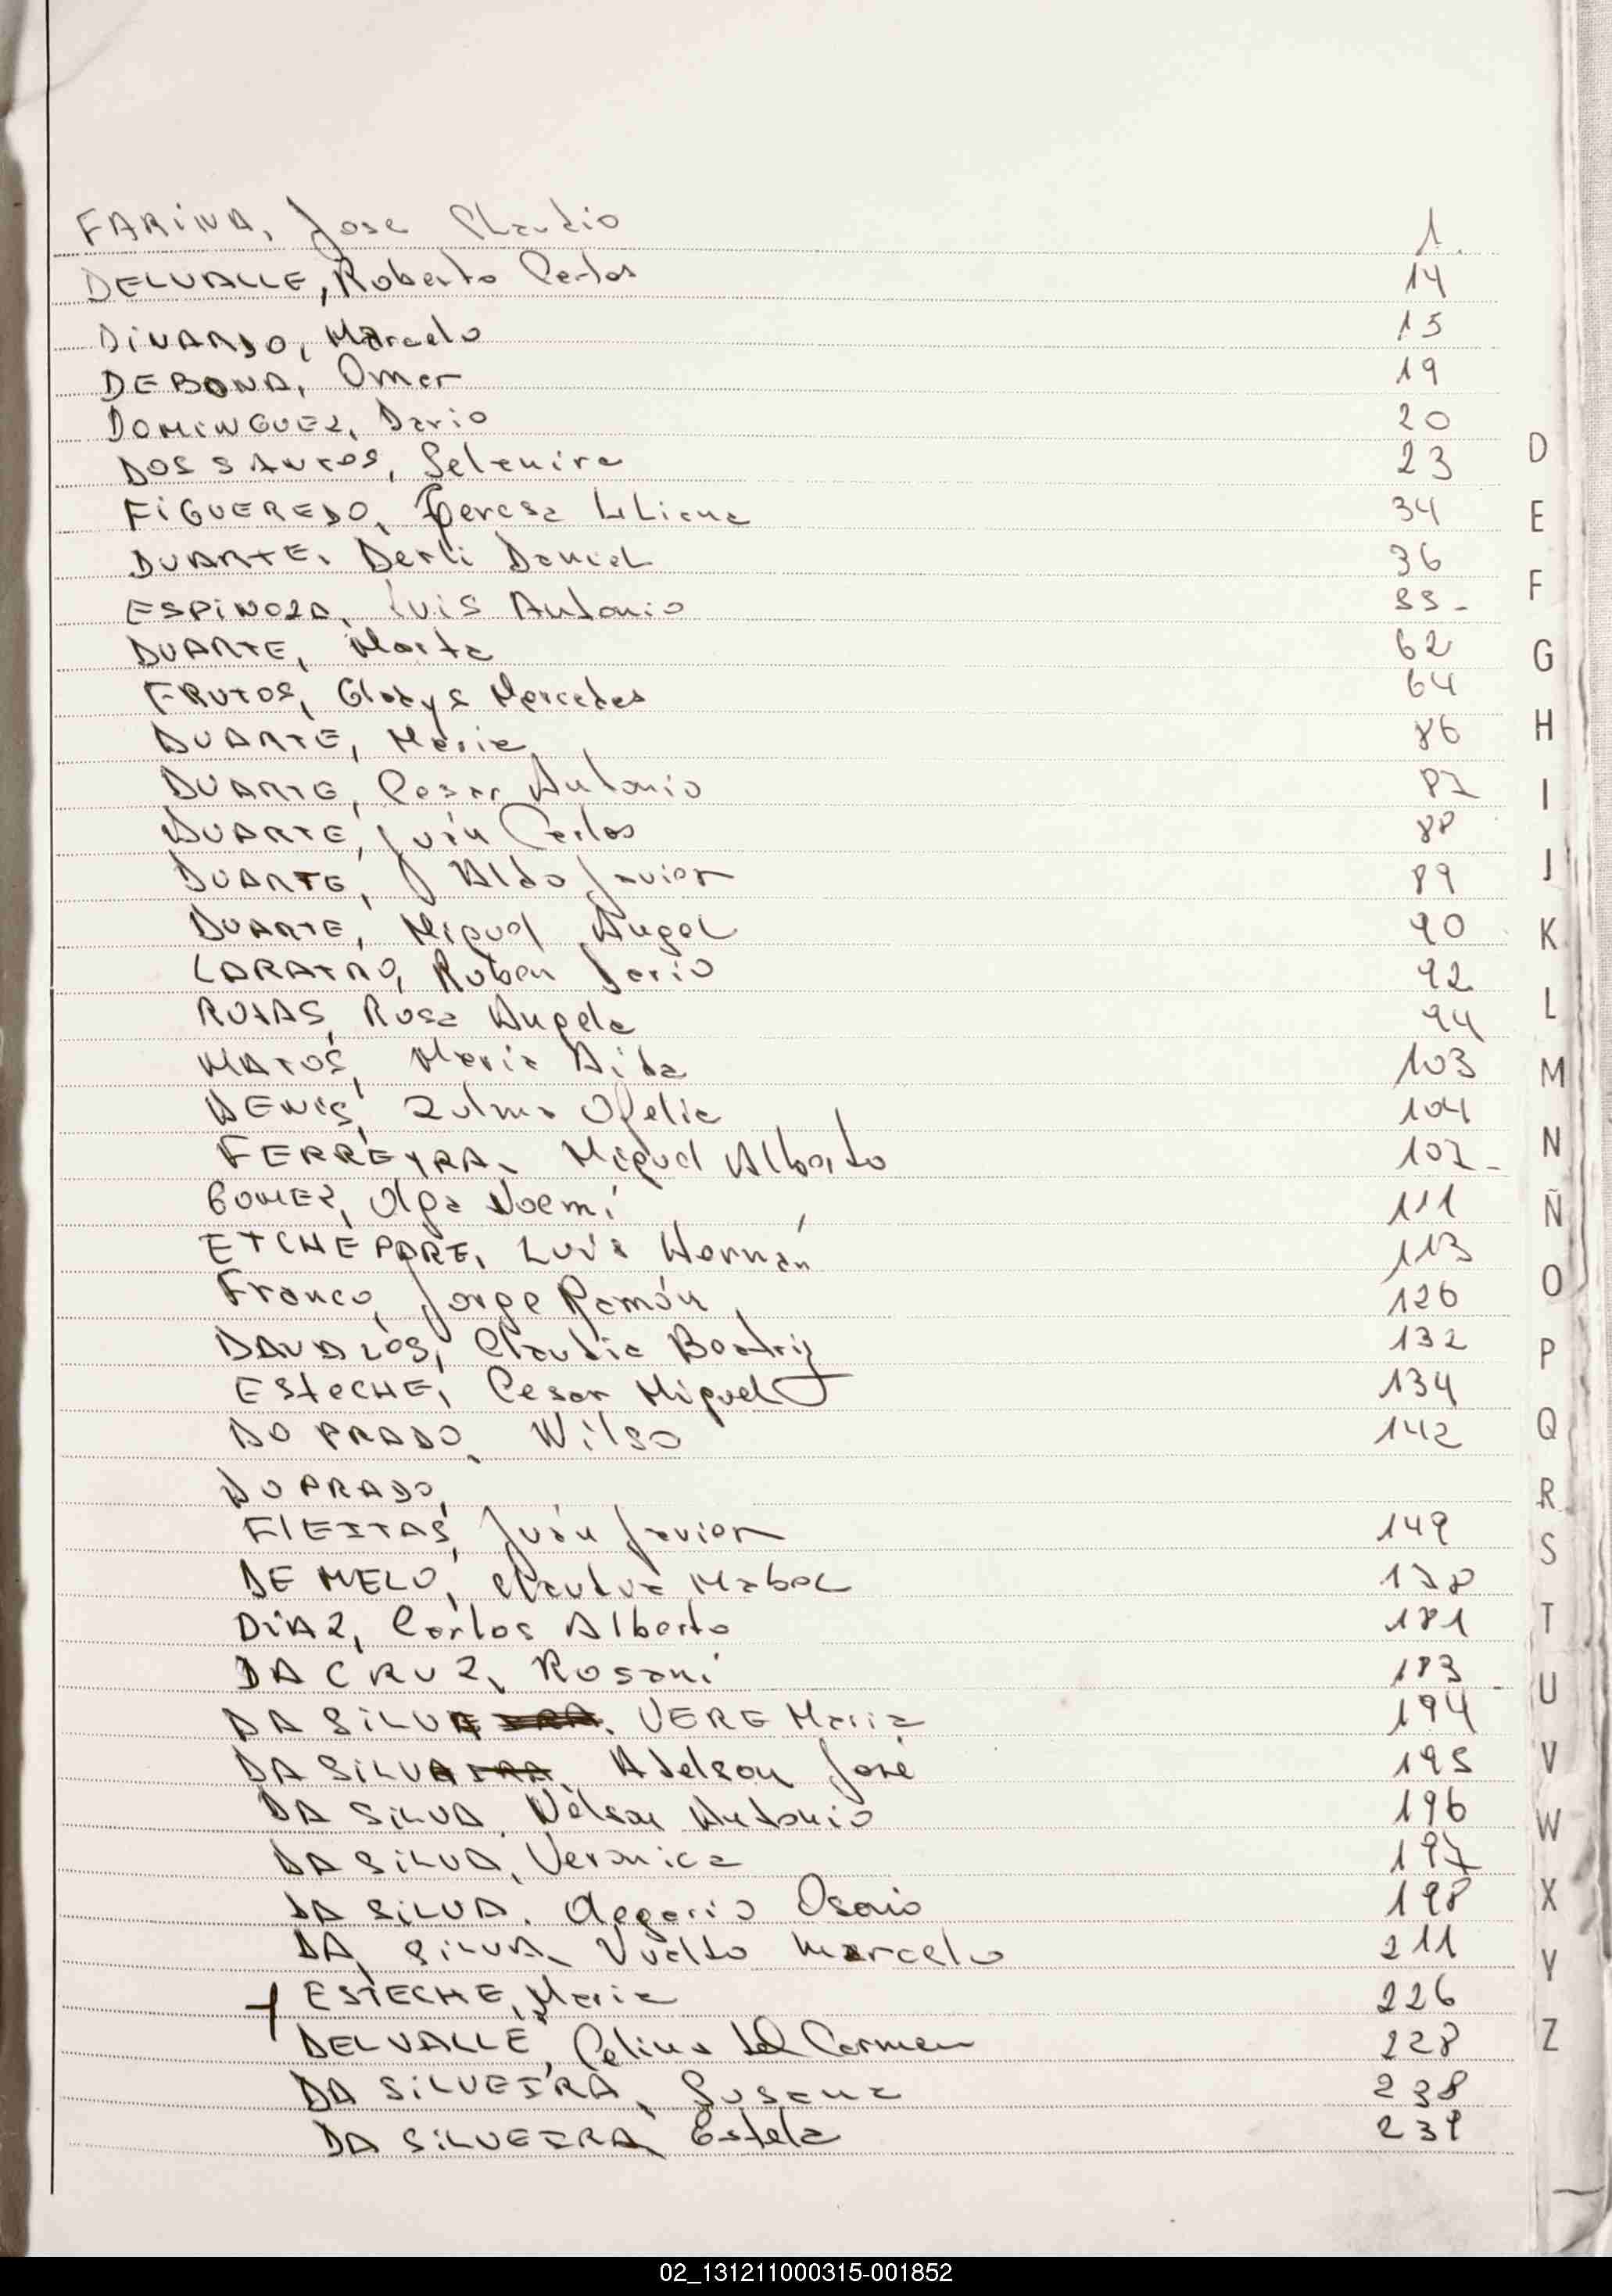 FARINA, Jose Claudio 1.
DELVALLE, Roberto Carlos 14
DINARDO, Marcelo 15
DEBONA, Omar 19
DOMINGUEZ, Dario 20
DOS SANTOS, Selemira 23
FIGUEREDO, Teresa Liliana 34
DUARTE, Derli Daniel 36
ESPINOZA, Luis Antonio 55-
DUARTE, Marta 62
FRUTOS, Gladys Mercedes 64
DUARTE, Maria 86
DUARTE, Cesar Antonio 87
DUARTE, Juan Carlos 88
DUARTE, Aldo Javier 89
DUARTE, Miguel Angel 90
Ruben Dario 92
ROJAS, Rosa Angela 94
MATOS, Maria Aida 103
DENIS, Zulma Ofelia 104
FERREYRA, Miguel Alberto 107-
GOMEZ, Olga Noemí 111
ETCHEPARE, Luis Hernán 113
Franco, Jorge Ramón 126
DAVALOS, Claudia Beatriz 132
ESteCHE, Cesar Miguel 134
DO PRADO, Nilso 142
DO PRADO,
FLEITAS, Juan Javier 149
DE MELO, Mabel 178
DIAZ, Carlos Alberto 181
DA CRUZ, Rosani 183
DA SILVA VERE Maria 194
DA SILVA Adelson José 195
DA SILVA, Nelson Antonio 196
DA SILVA, Veronica 197
DA SILVA, 198
DA SILVA, Marcelo 211
ESTECHE, Maria 226
DELVALLE, Celina del Carmen 228
DA SILVEIRA, Susana 238
DA SILVEIRA, Estela 239
D
E
F
G
H
I
J
K
L
M
N
Ñ
O
P
Q
R
S
T
U
V
W
X
Y
Z
02_131211000315-001852